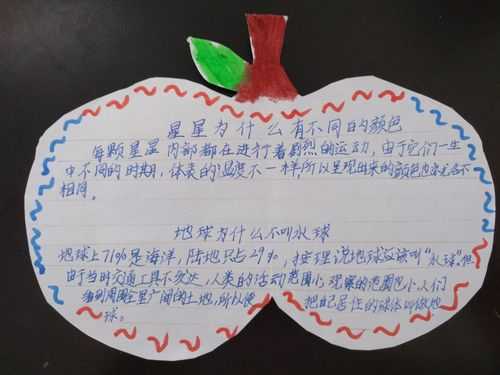 星星为什么有不同的颜色
每颗星星内部都在进行着剧烈的运动,由于它们一生
中不同的时期,体表的温度不一样所以呈现出来的颜色也各不
相同。
地球为什么不叫水球
地球上71%是海洋,陆地只占29%,按理说地球应该叫“水球”。但
由于当时交通工具不发达,人类的活动范围小,观察的范围也小,人们
看到周围全是广阔的土地,所以便 把自己居住的球体叫做地
球。